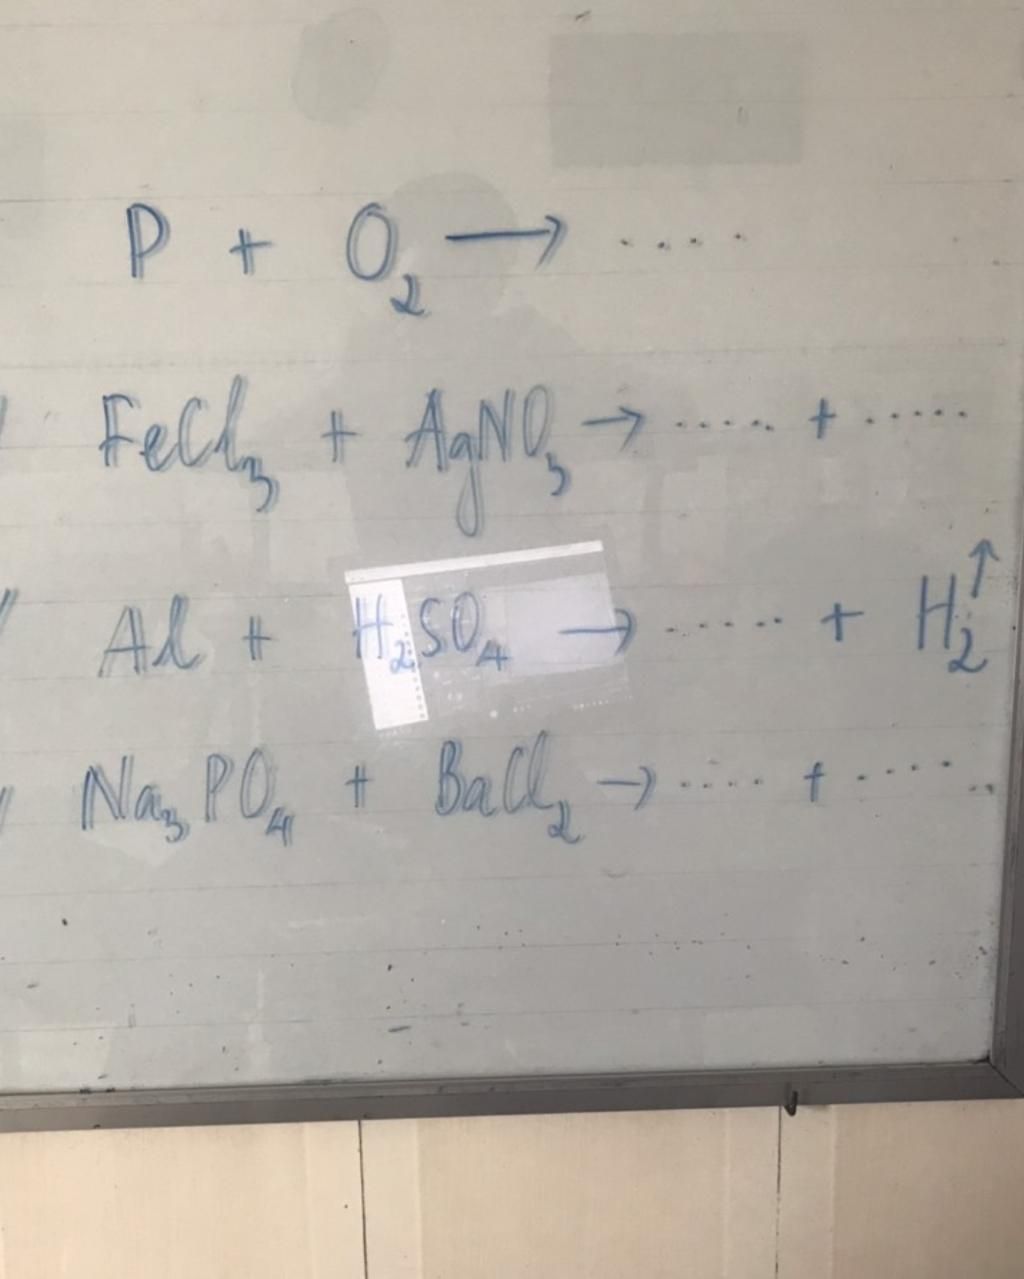 P + O₂ → ....
/ FeCl₃ + AgNO₃ → ..... + .....
/ Al + H₂SO₄ → ..... + H₂↑
/ Na₃PO₄ + BaCl₂ → .... + ......